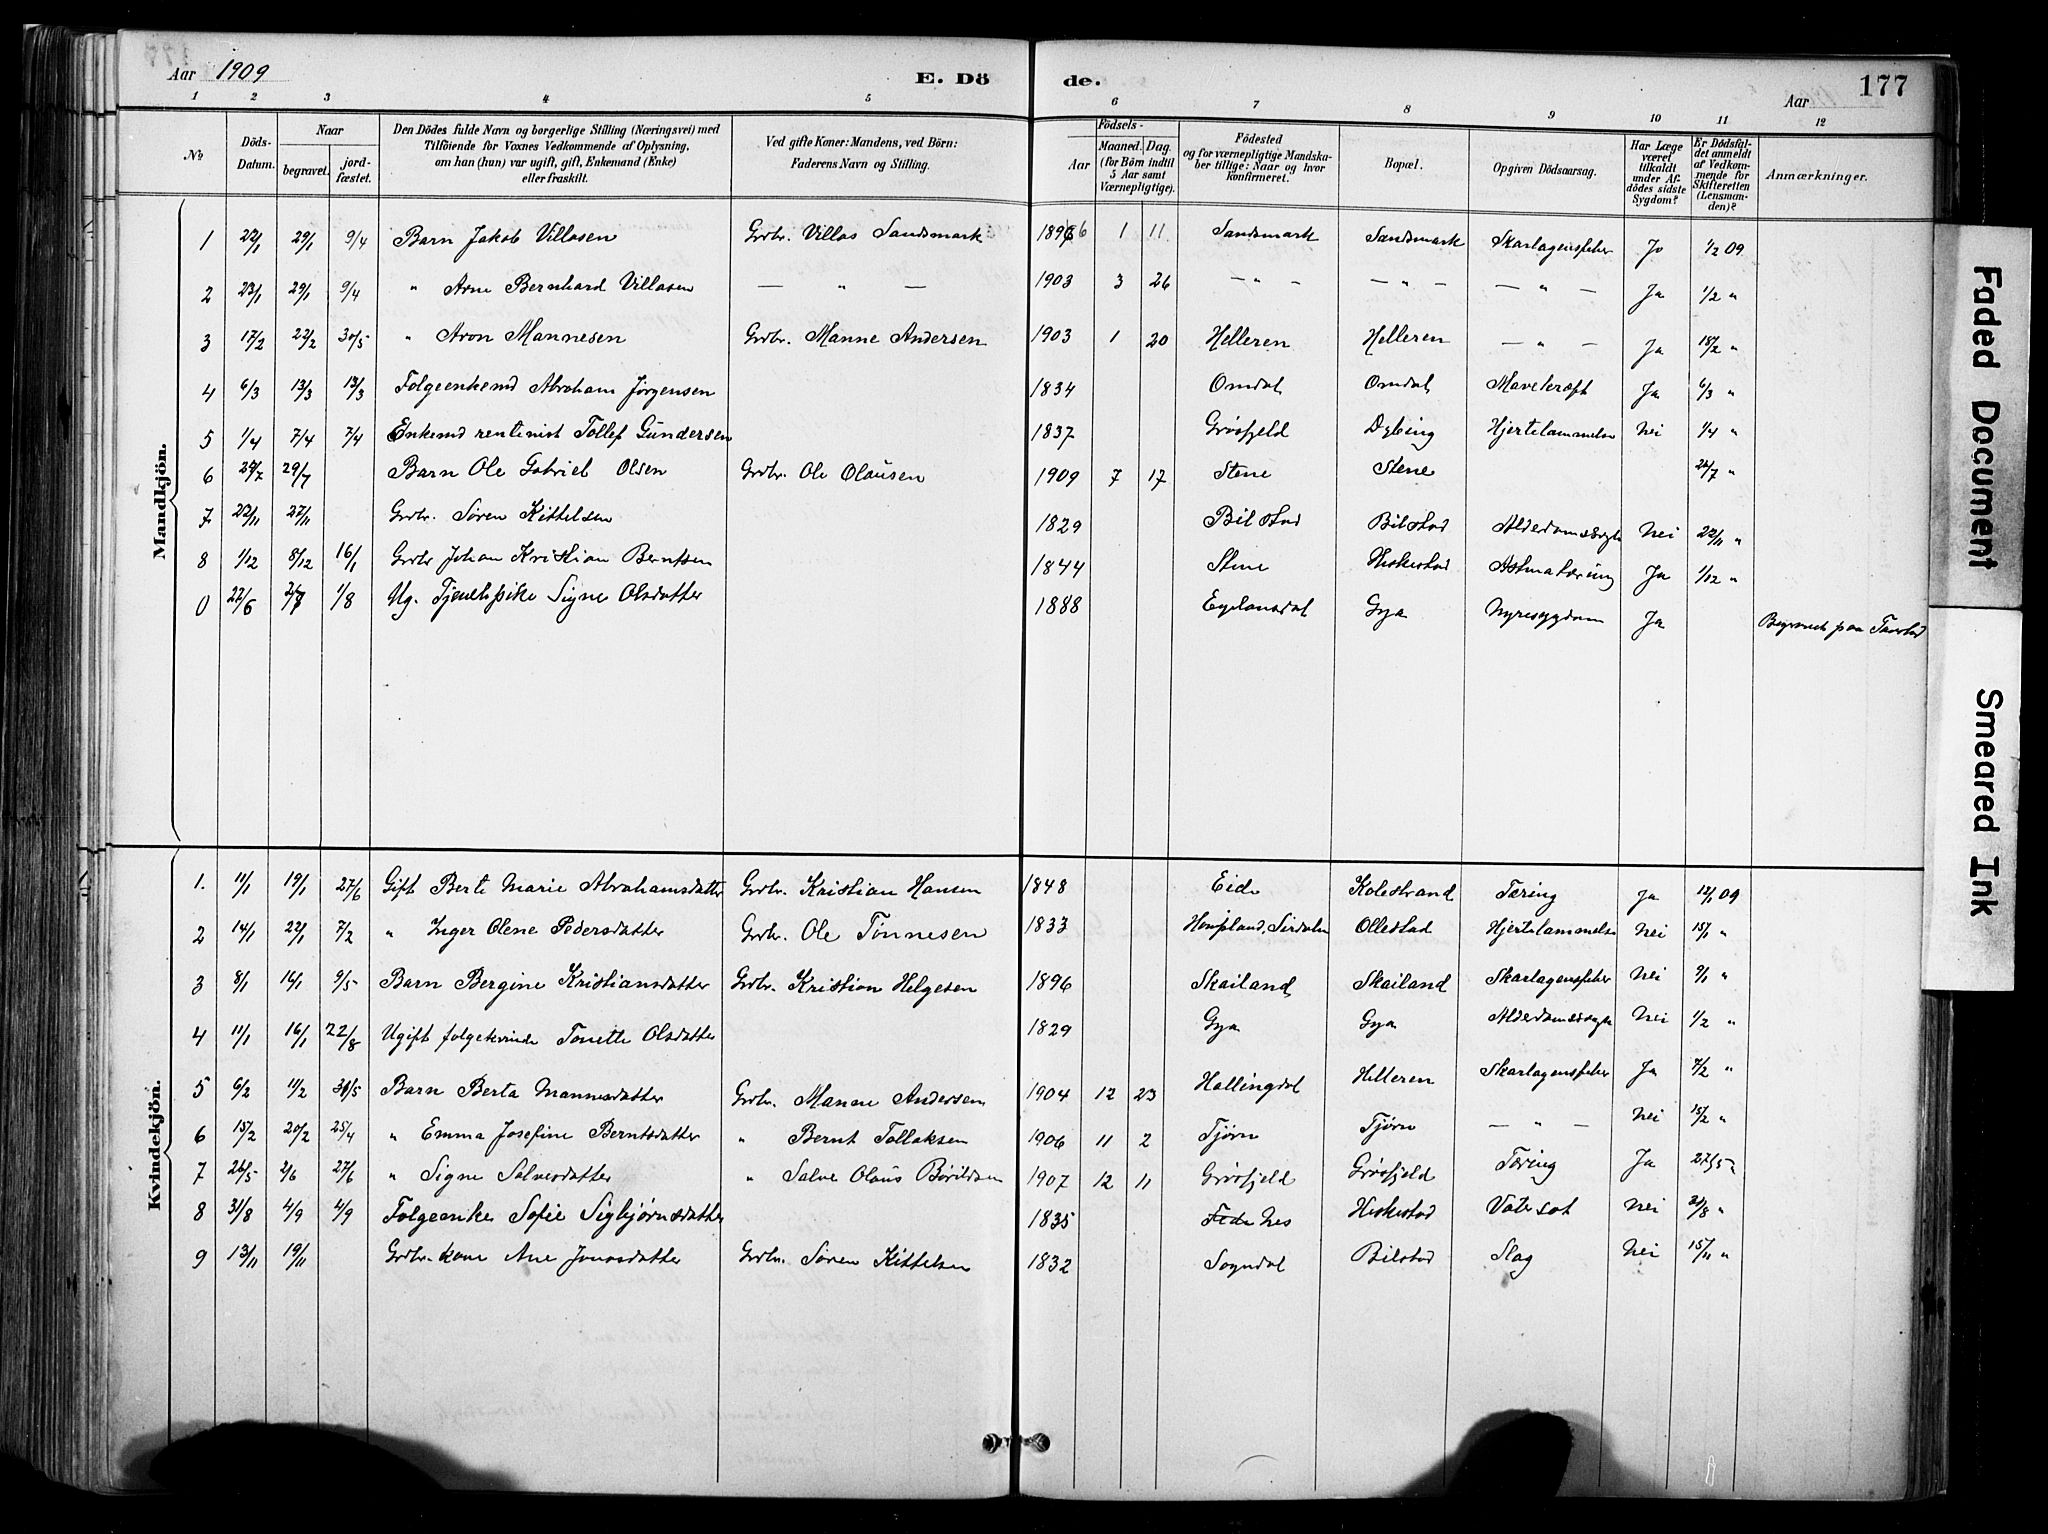 Aar 1909 E. Dö de. Aar 177
1 2 3 4 5 6 7 8 9 10 11 12
No Döds-Datum. Naar begravet. jordfæstet. Den Dödes fulde Navn og borgerlige Stilling (Næringsvei) med Tilföiende for Voxnes Vedkommende af Oplysning, om han (hun) var ugift, gift, Enkemand (Enke) eller fraskilt. Ved gifte Koner: Mandens, ved Börn: Faderens Navn og Stilling. Födsels- Aar Maaned. Dag. (for Börn indtil 5 Aar samt Værnepligtige). Födested og for værnepligtige Mandskaber tillige: Naar og hvor konfirmeret. Bopæl. Opgiven Dödsaarsag. Har Læge været tilkaldt under Afdödes sidste Sygdom? Er Dödsfaldet anmeldt af Vedkommende for Skifteretten (Lensmanden)? Anmærkninger.
Mandkjön.
1 22/1 29/1 9/4 Barn Jakob Villasen Grdbr. Villas Sandsmark 1896 1 11 Sandsmark Sandsmark Skarlagensfeber Ja 1/2 09
2 23/1 29/1 9/4 " Arne Bernhard Villasen — " — 1903 3 26 — " — — " — — " — Ja 1/2 "
3 17/2 22/2 30/5 " Aron Mannesen Grdbr. Manne Andersen 1903 1 20 Helleren Helleren — " — Ja 18/2 "
4 6/3 13/3 13/3 Folgeenkemd Abraham Jørgensen 1834 Omdal Omdal Mavekræft Ja 6/3 "
5 1/4 7/4 7/4 Enkemd rentenist Tollef Gundersen 1837 Grøsfjeld Dybing Hjertelammelse Nei 1/4 "
6 24/7 29/7 Barn Ole Gabriel Olsen Grdbr. Ole Olausen 1909 7 17 Stene Stene 26/7 "
7 22/11 27/11 Grdbr. Søren Kittelsen 1829 Bilstad Bilstad Alderdomssvagh Nei 22/11 "
8 1/12 8/12 16/1 Grdbr Johan Kristian Berntsen 1844 Stene Heskestad Astma tæring Ja 1/12 "
0 22/6 2/7 1/8 Ug. Tjenestpike Signe Olsdatter 1888 Egelandsdal Gya Nyresygdom Ja Begravet paa Taastad
Kvindekjön.
1. 11/1 19/1 27/6 Gift Berte Marie Abrahamsdatter Grdbr. Kristian Hansen 1848 Eide Kolestrand Tæring Ja 12/1 09
2 14/1 22/1 7/2 " Inger Olene Pedersdatter Grdbr. Ole Tønnesen 1833 Hompland, Sirdalen Ollestad Hjertelammelse Nei 15/1 "
3 8/1 16/1 9/5 Barn Bergine Kristiansdatter Grdbr. Kristian Helgesen 1896 Skailand Skailand Skarlagensfeber Nei 9/1 "
4 11/1 16/1 22/8 Ugift folgekvinde Tonette Olsdatter 1829 Gya Gya Alderdomssvagh Nei 1/2 "
5 6/2 11/2 30/5 Barn Berta Mannesdatter Grdbr. Manne Andersen 1904 12 23 Hallingdal Helleren Skarlagensfeber Ja 7/2 "
6 15/2 20/2 25/4 " Emma Josefine Berntsdatter " Bernt Tollaksen 1906 11 2 Tjørn Tjørn — " — Nei 15/2 "
7 26/5 2/6 27/6 " Signe Salvesdatter " Salve Olaus Bøvildsen 1907 12 11 Grøsfjeld Grøsfjeld Tæring Ja 27/5 "
8 31/8 4/9 4/9 Folgeenke Sofie Sigbjørnsdatter 1835 Fede Nes Heskestad Vatersot Nei 31/8 "
9 13/11 19/11 Grdbr. kone Ane Jonasdatter Grdbr. Søren Kittelsen 1832 Sogndal Bilstad Slag Nei 15/11 "
Faded Document
Smeared Ink